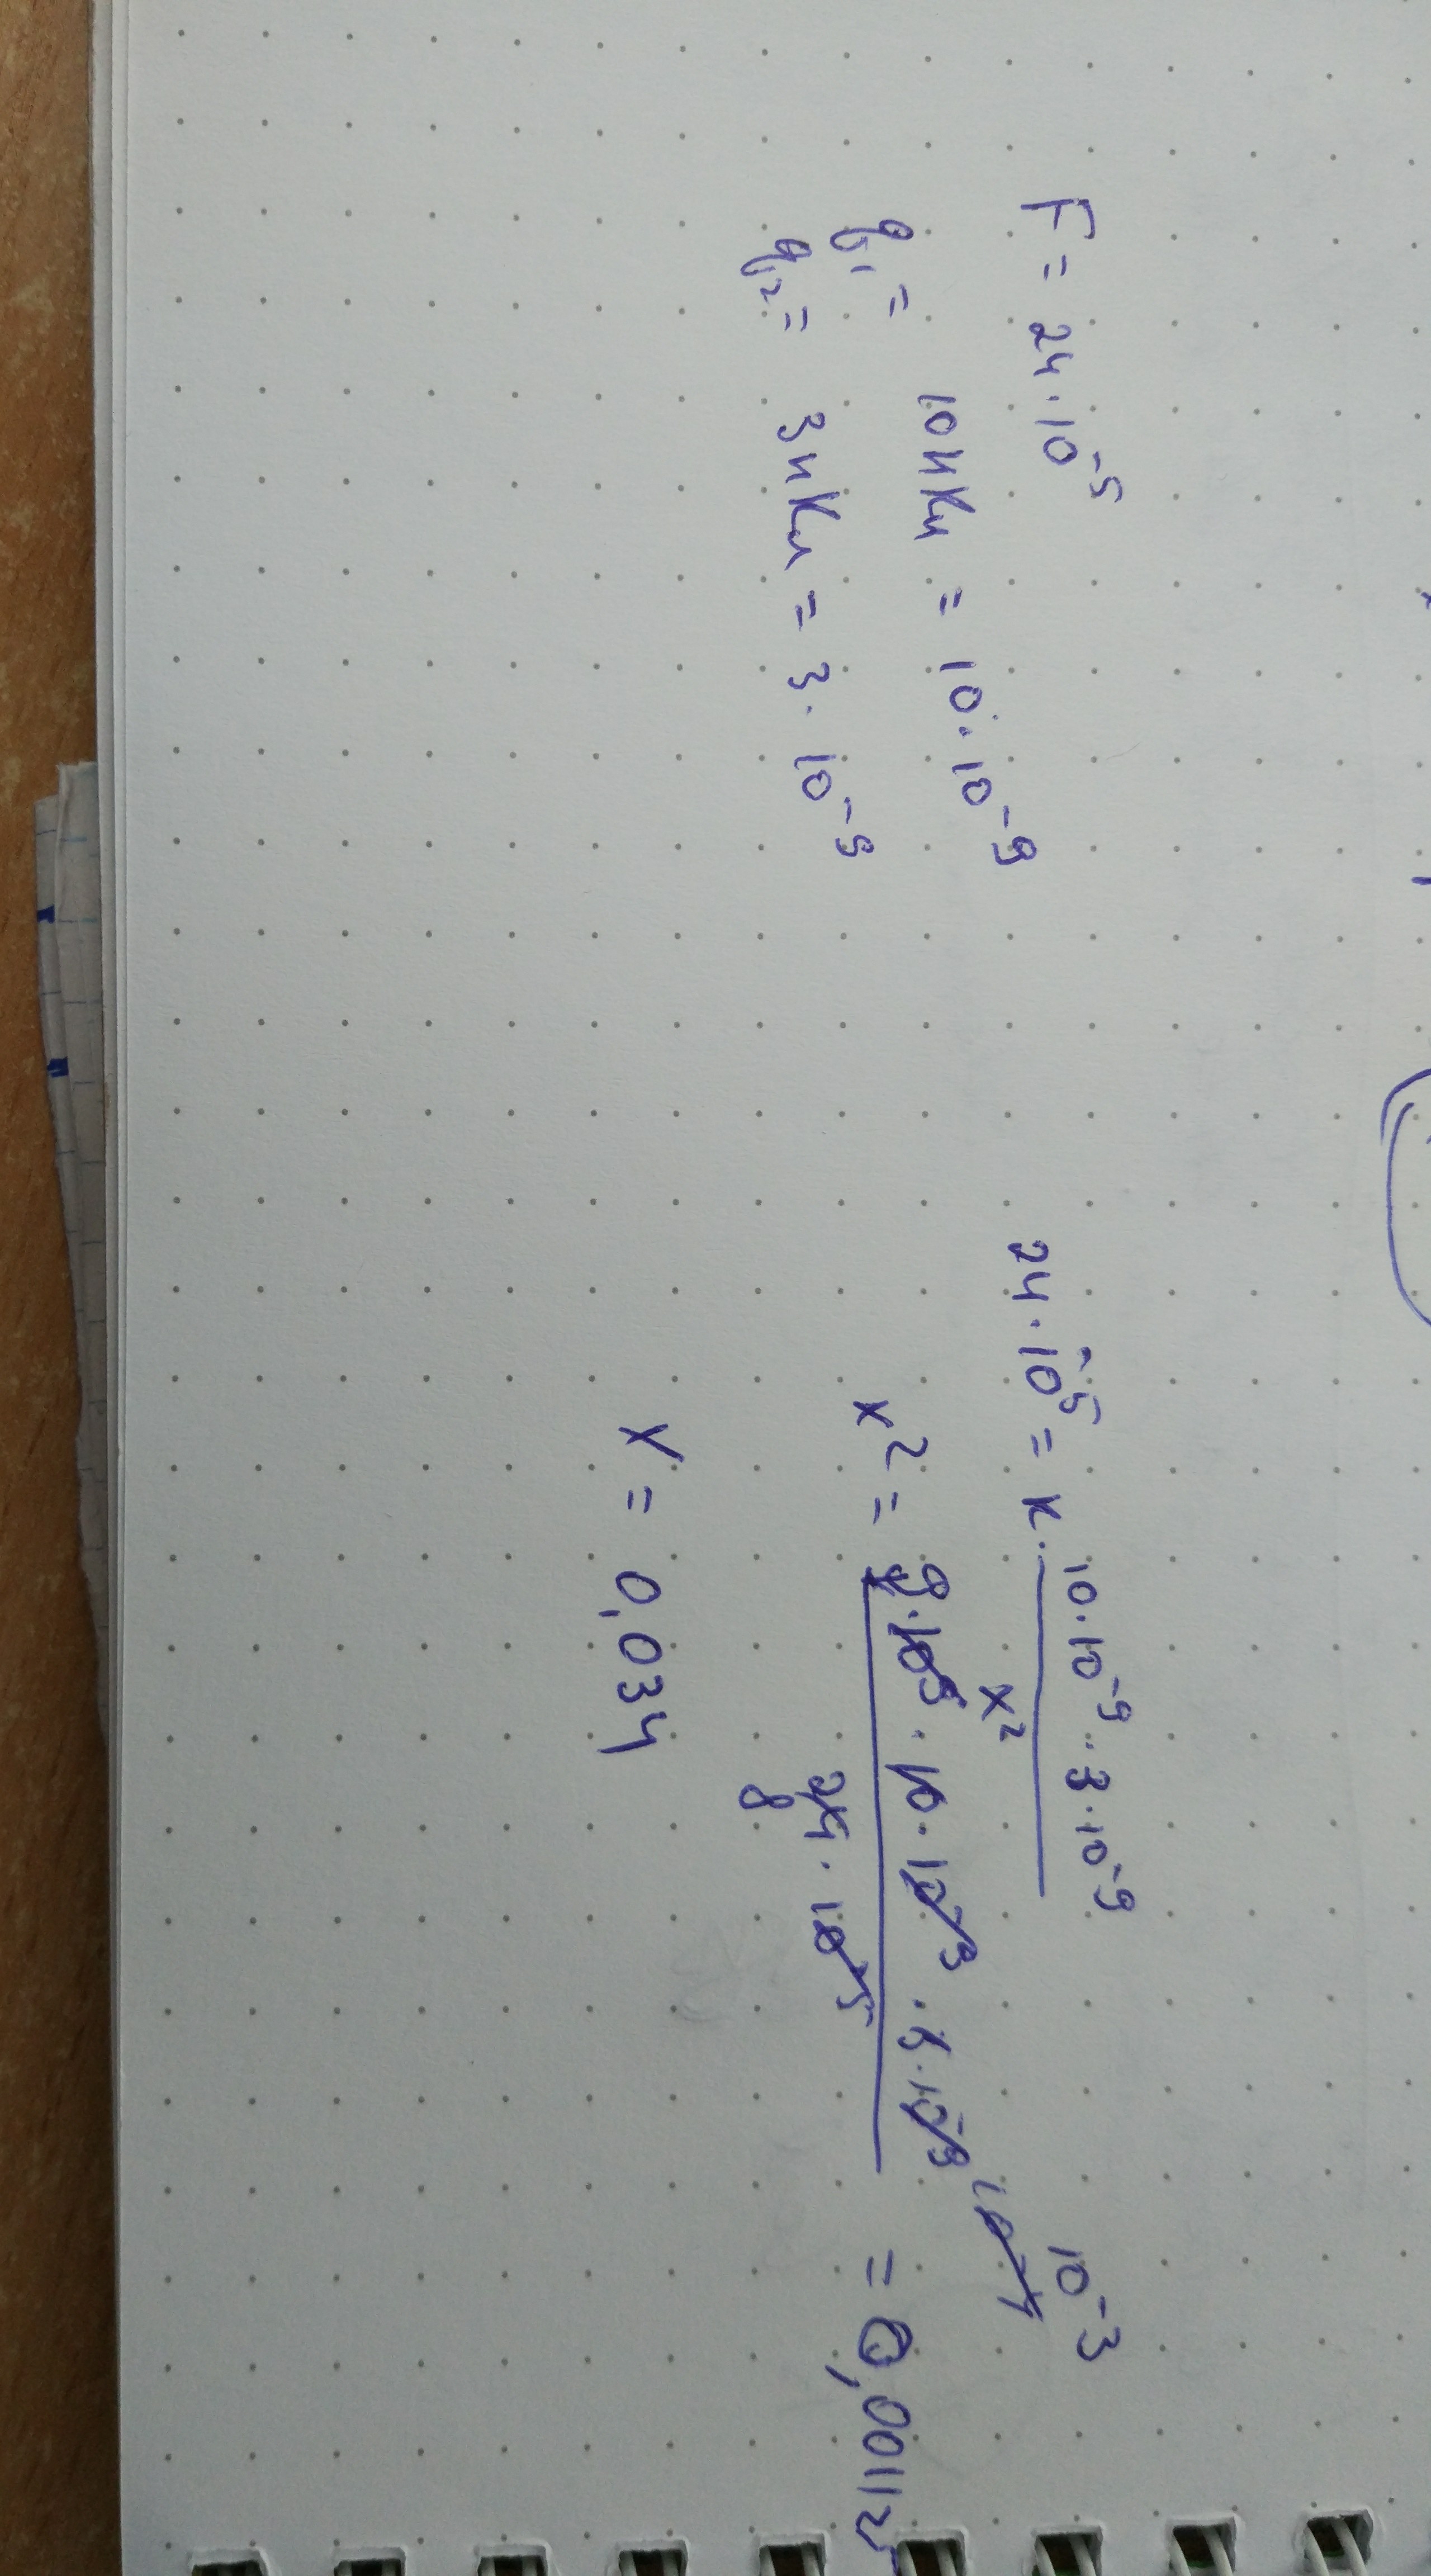 F = 24·10⁻⁵
q₁ = 10нКл = 10·10⁻⁹
q₂ = 3нКл = 3·10⁻⁹
24·10⁻⁵ = k· (10·10⁻⁹·3·10⁻⁹)/x²
10⁻³
x² = (9·10⁹·10·10⁻⁹·3·10⁻⁹)/(24·10⁻⁵) = 0,001125
8
x = 0,034